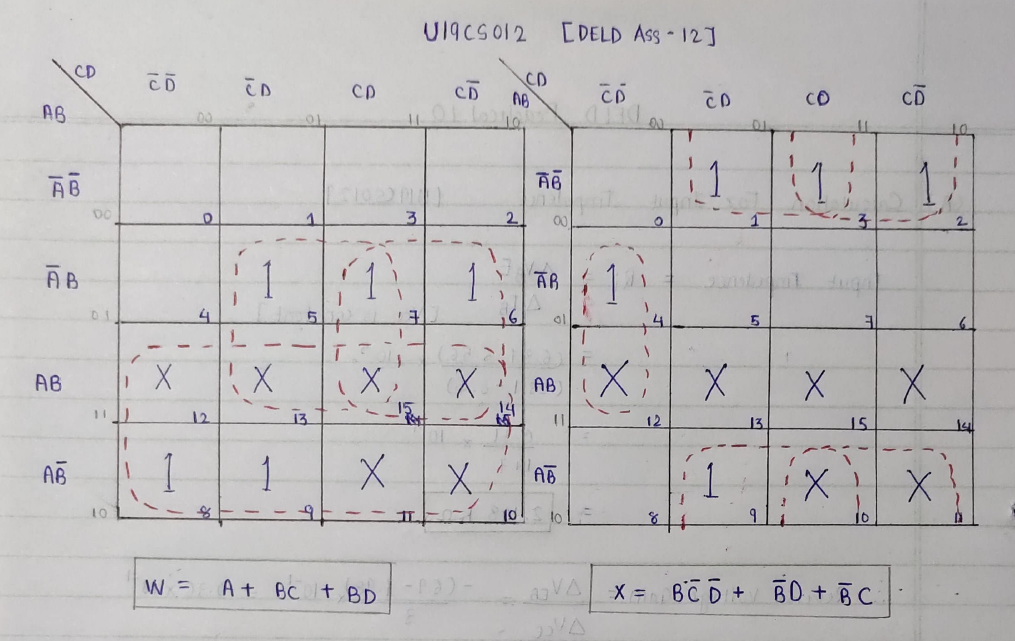 U19CS012 [DELD Ass-12]
CD C̅D̅ C̅D CD CD̅
AB 00 01 11 10
A̅B̅ 00 0 1 3 2
A̅B 01 1 4 1 5 1 7 6
AB 11 X 12 X 13 X 15 X 14
AB̅ 10 1 8 1 9 X 11 X 10
W = A + BC + BD
CD C̅D̅ C̅D CD CD̅
AB 00 01 11 10
A̅B̅ 00 0 1 1 1 3 1 2
A̅B 01 1 4 5 7 6
AB 11 X 12 X 13 X 15 X 14
AB̅ 10 8 1 9 X 10 X 11
X = BC̅D̅ + B̅D + B̅C